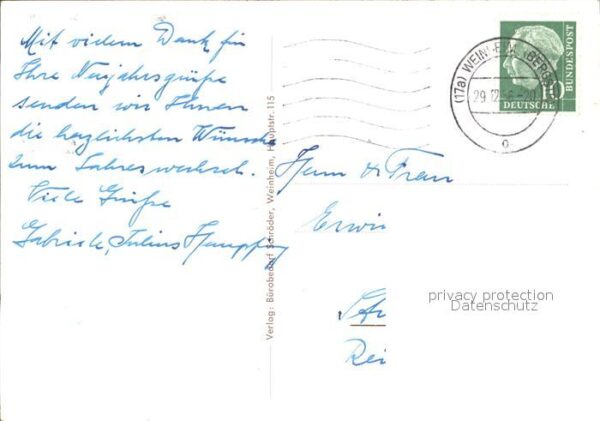 Mit vielem Dank für
Ihre Neujahrsgrüße
senden wir Ihnen
die herzlichsten Wünsche
zum Jahreswechsel.
Viele Grüße
Gabriele, Julius
Verlag: Bürobedarf Schröder, Weinheim, Hauptstr. 115
(17a) WEINHEIM (BERGSTR)
29.12.56.-20
DEUTSCHE
BUNDESPOST
10
Herrn & Frau
Erwin
privacy protection
Datenschutz